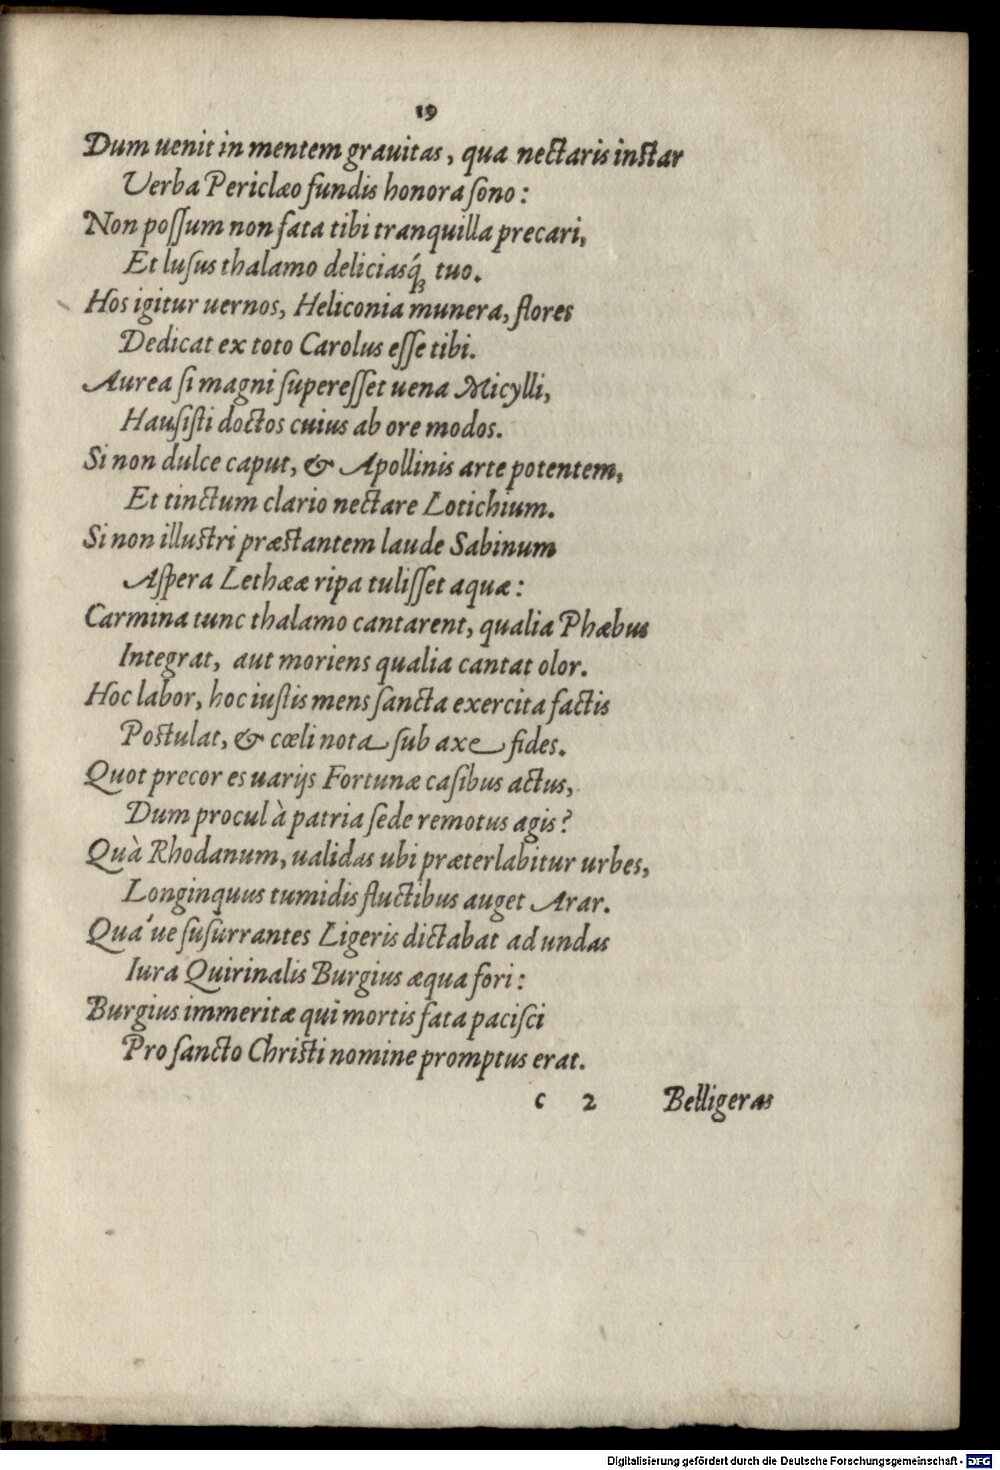 19
Dum uenit in mentem grauitas, qua nectaris instar
Uerba Periclæo fundis honora ſono:
Non poſſum non fata tibi tranquilla precari,
Et luſus thalamo deliciasq́ꝫ tuo.
Hos igitur uernos, Heliconia munera, flores
Dedicat ex toto Carolus eſſe tibi.
Aurea ſi magni ſupereſſet uena Micylli,
Hauſiſti doctos cuius ab ore modos.
Si non dulce caput, & Apollinis arte potentem,
Et tinctum clario nectare Lotichium.
Si non illustri præstantem laude Sabinum
Aſpera Lethææ ripa tuliſſet aquæ:
Carmina tunc thalamo cantarent, qualia Phæbus
Integrat, aut moriens qualia cantat olor.
Hoc labor, hoc iuſtis mens ſancta exercita factis
Postulat, & cœli nota ſub axe fides.
Quot precor es uarijs Fortunæ caſibus actus,
Dum procul à patria ſede remotus agis?
Quà Rhodanum, ualidas ubi præterlabitur urbes,
Longinquus tumidis fluctibus auget Arar.
Quá ue ſuſurrantes Ligeris dictabat ad undas
Iura Quirinalis Burgius æqua fori:
Burgius immeritæ qui mortis fata paciſci
Pro ſancto Christi nomine promptus erat.
c 2 Belligeras
Digitalisierung gefördert durch die Deutsche Forschungsgemeinschaft - DFG